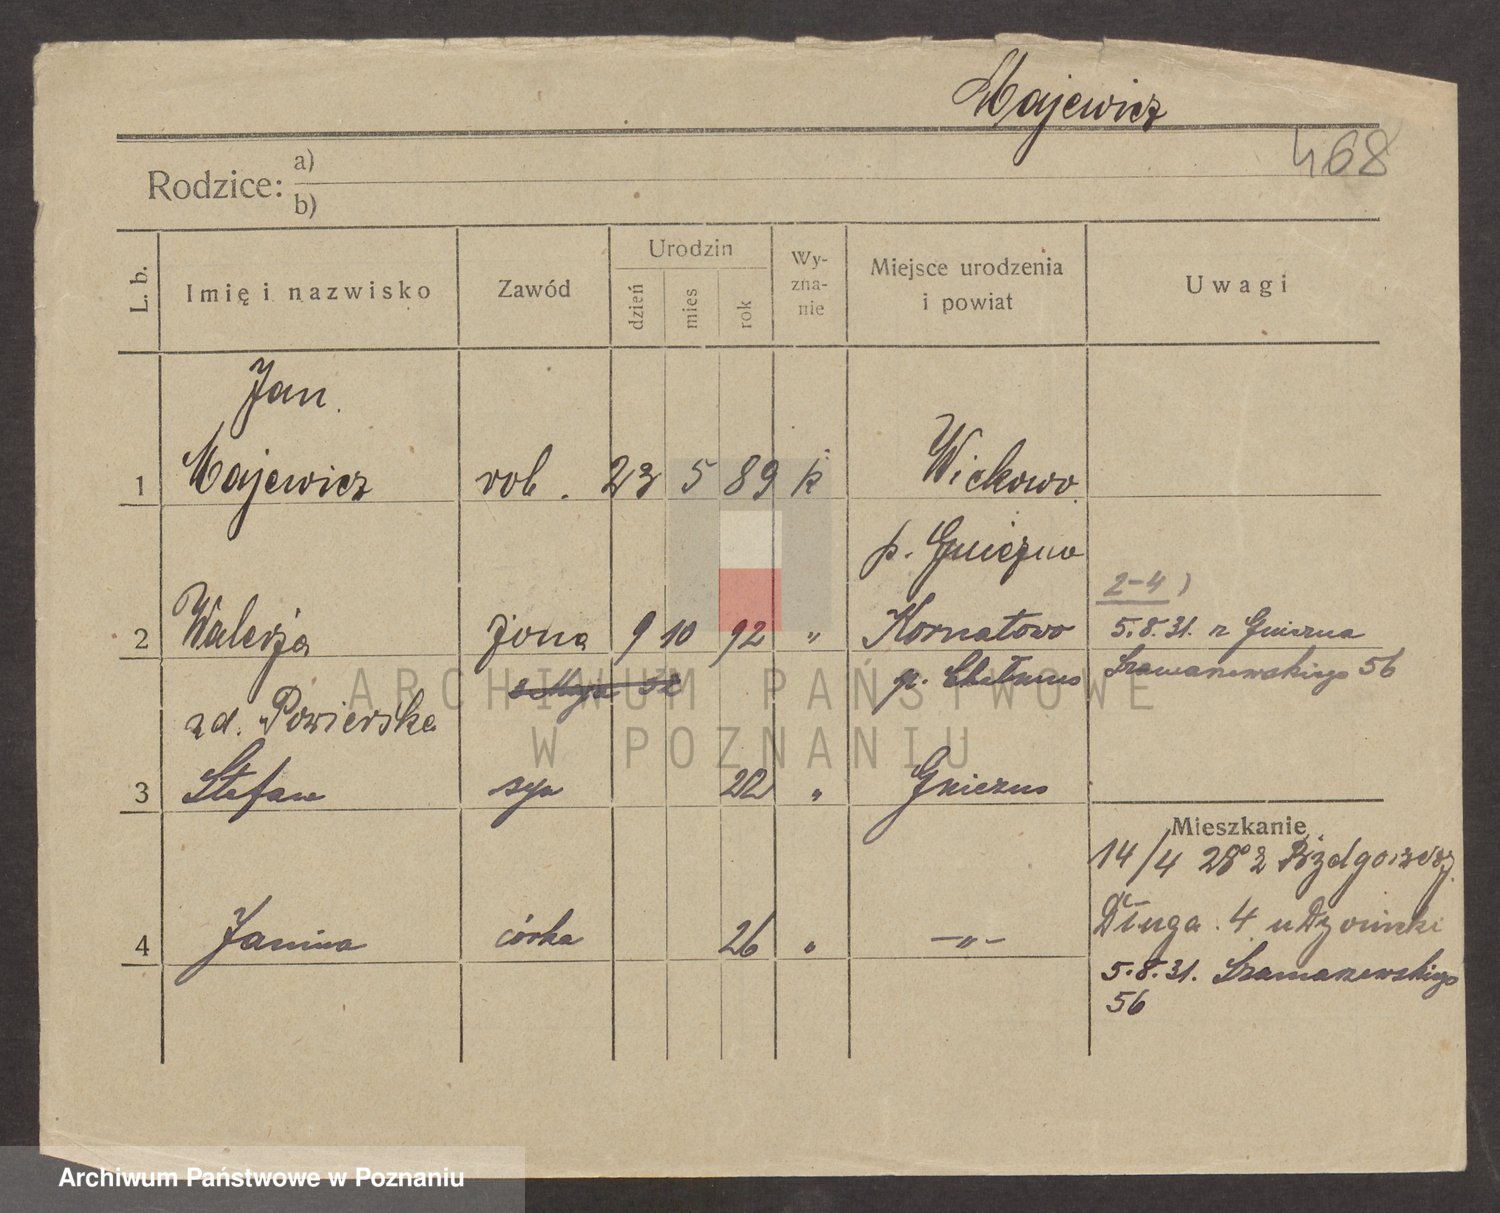 Majewicz
468
Rodzice: a)
b)
L. b.
Imię i nazwisko
Zawód
Urodzin
dzień
mies
rok
Wy-
zna-
nie
Miejsce urodzenia
i powiat
Uwagi
Jan
1 Majewicz rob. 23 5 89 k Wiekowo
p. Gniezno
2 Walerja żona 9 10 92 " Kornatowo
p. Chełmno
zd. Powierska
2-4)
5.8.31. z Gniezna
Szamarzewskiego 56
3 Stefan syn 22 " Gniezno
4 Janina córka 26 " -"-
Mieszkanie
14/4 28 z Bydgoszczy
Długa 4 u
5.8.31. Szamarzewskiego
56
ARCHIWUM PAŃSTWOWE
W POZNANIU
Archiwum Państwowe w Poznaniu